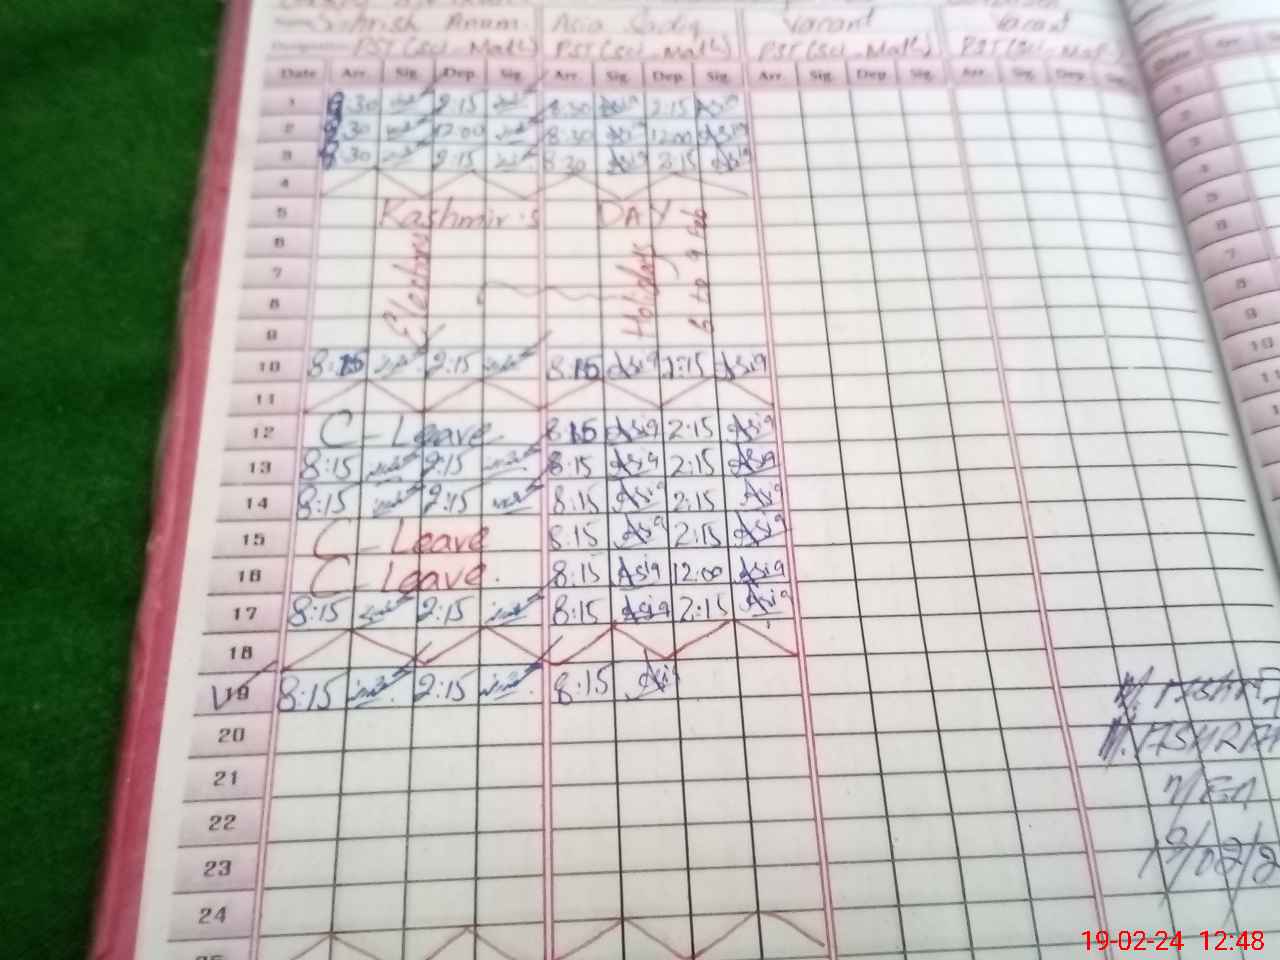 Sehrish Anam. Asia Sadiq Vacant Vacant
PST (Scl. Math) PST (Scl. Math) PST (Scl. Math) PST (Scl. Math)
Date Arr. Sig. Dep. Sig. Arr. Sig. Dep. Sig. Arr. Sig. Dep. Sig. Arr. Sig. Dep. Sig. Date Arr.
1 8:30 2:15 8:30 Asia 2:15 Asia
2 8:30 12:00 8:30 Asia 12:00 Asia
3 8:30 2:15 8:30 Asia 2:15 Asia
4
5 Kashmir's DAY
6
7 Elections Holidays 5 to 9 Feb
8
9
10 8:15 2:15 8:15 Asia 2:15 Asia
11
12 C-Leave 8:15 Asia 2:15 Asia
13 8:15 2:15 8:15 Asia 2:15 Asia
14 8:15 2:15 8:15 Asia 2:15 Asia
15 C-Leave 8:15 Asia 2:15 Asia
16 C-Leave. 8:15 Asia 12:00 Asia
17 8:15 2:15 8:15 Asia 2:15 Asia
18
19 8:15 2:15 8:15 Asia
20
21
22
23
24
25
1
2
3
4
5
6
7
8
9
10
11
MEA
19/02/2
19-02-24 12:48